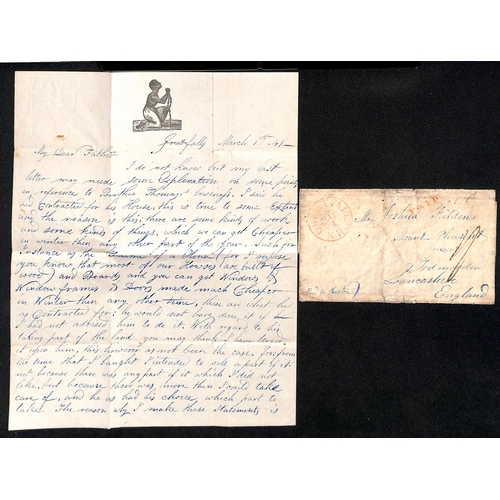 Great falls March 1st 41
My Dear Father
I do not know but my last
letter may need some Explanation on some points
in reference to Brother Thomas's buisness, I said he
as Contracted for his House, this is true to some Extent
and the reason is this, there are some kinds of work
and some kinds of things, which we can get Cheaper
in winter than any other part of the Year. Such for
Instance as the frame of a House (for I suppose
you know that most of our Houses are built of
wood) and Boards, and you can get Windows &
Window frames & Doors made much Cheaper
in Winter than any other time, these are what he
as Contracted for; he would not have done it if
I had not advised him to do it. With regard to his
taking part of the land you may think I have
upon him, this however as not been the case, for from
the time that I bought I intended to sell a part of it
not because there was any part of it which I did not
like, but because there was more than I could take
care of, and he as had his choice which part to
take. The reason why I make these statements is
Mr Joshua Fielden
Todmorden
Lancashire
England